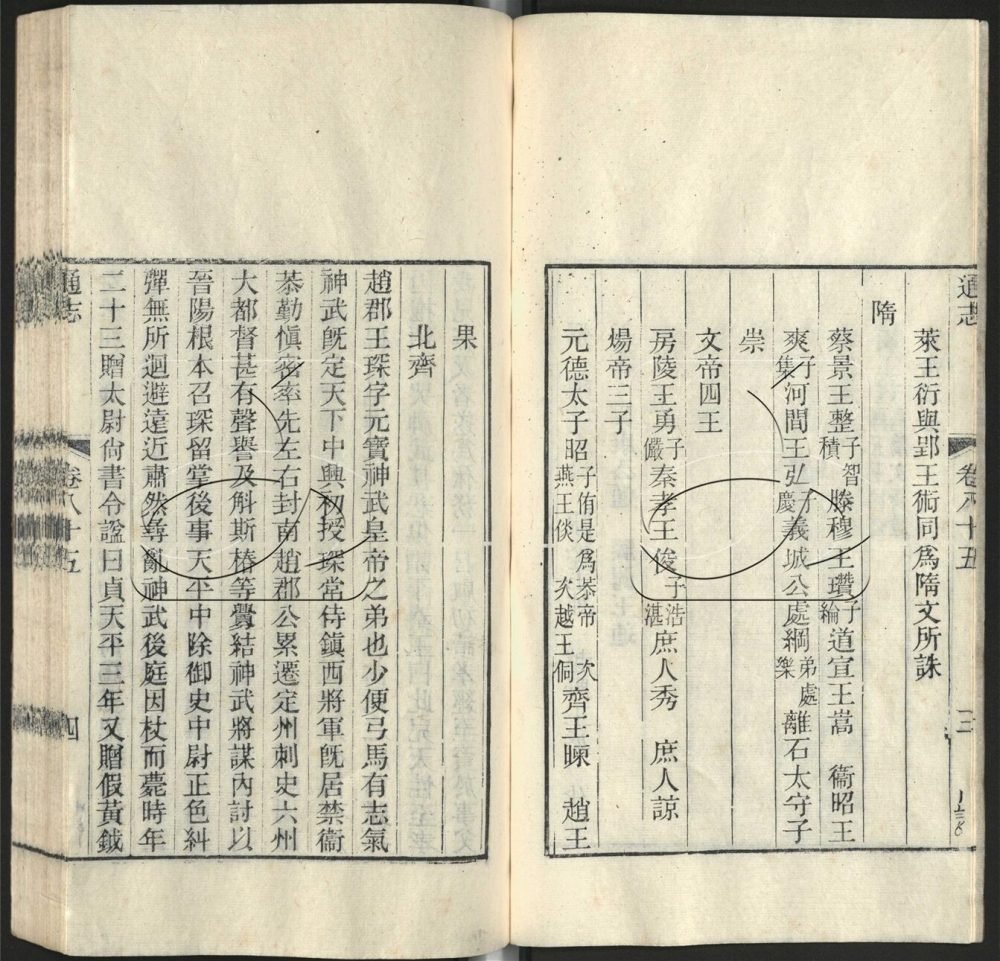 通志
卷八十五
三
萊王衍與郢王術同爲隋文所誅
隋
蔡景王整子智積 滕穆王瓚子綸 道宣王嵩 衞昭王
爽子集 河間王弘子慶 義城公處綱弟處樂 離石太守子
崇
文帝四王
房陵王勇子儼 秦孝王俊子浩湛 庶人秀 庶人諒
煬帝三子
元德太子昭子侑是爲恭帝 次燕王倓 次越王侗 齊王暕 趙王
果
北齊
趙郡王琛字元寶神武皇帝之弟也少便弓馬有志氣
神武旣定天下中興初授琛常侍鎮西將軍旣居禁衞
恭勤愼密率先左右封南趙郡公累遷定州刺史六州
大都督甚有聲譽及斛斯椿等釁結神武將謀內討以
晉陽根本召琛留掌後事天平中除御史中尉正色糾
彈無所迴避遠近肅然尋亂神武後庭因杖而薨時年
二十三贈太尉尙書令諡曰貞天平三年又贈假黃鉞
通志
卷八十五
四